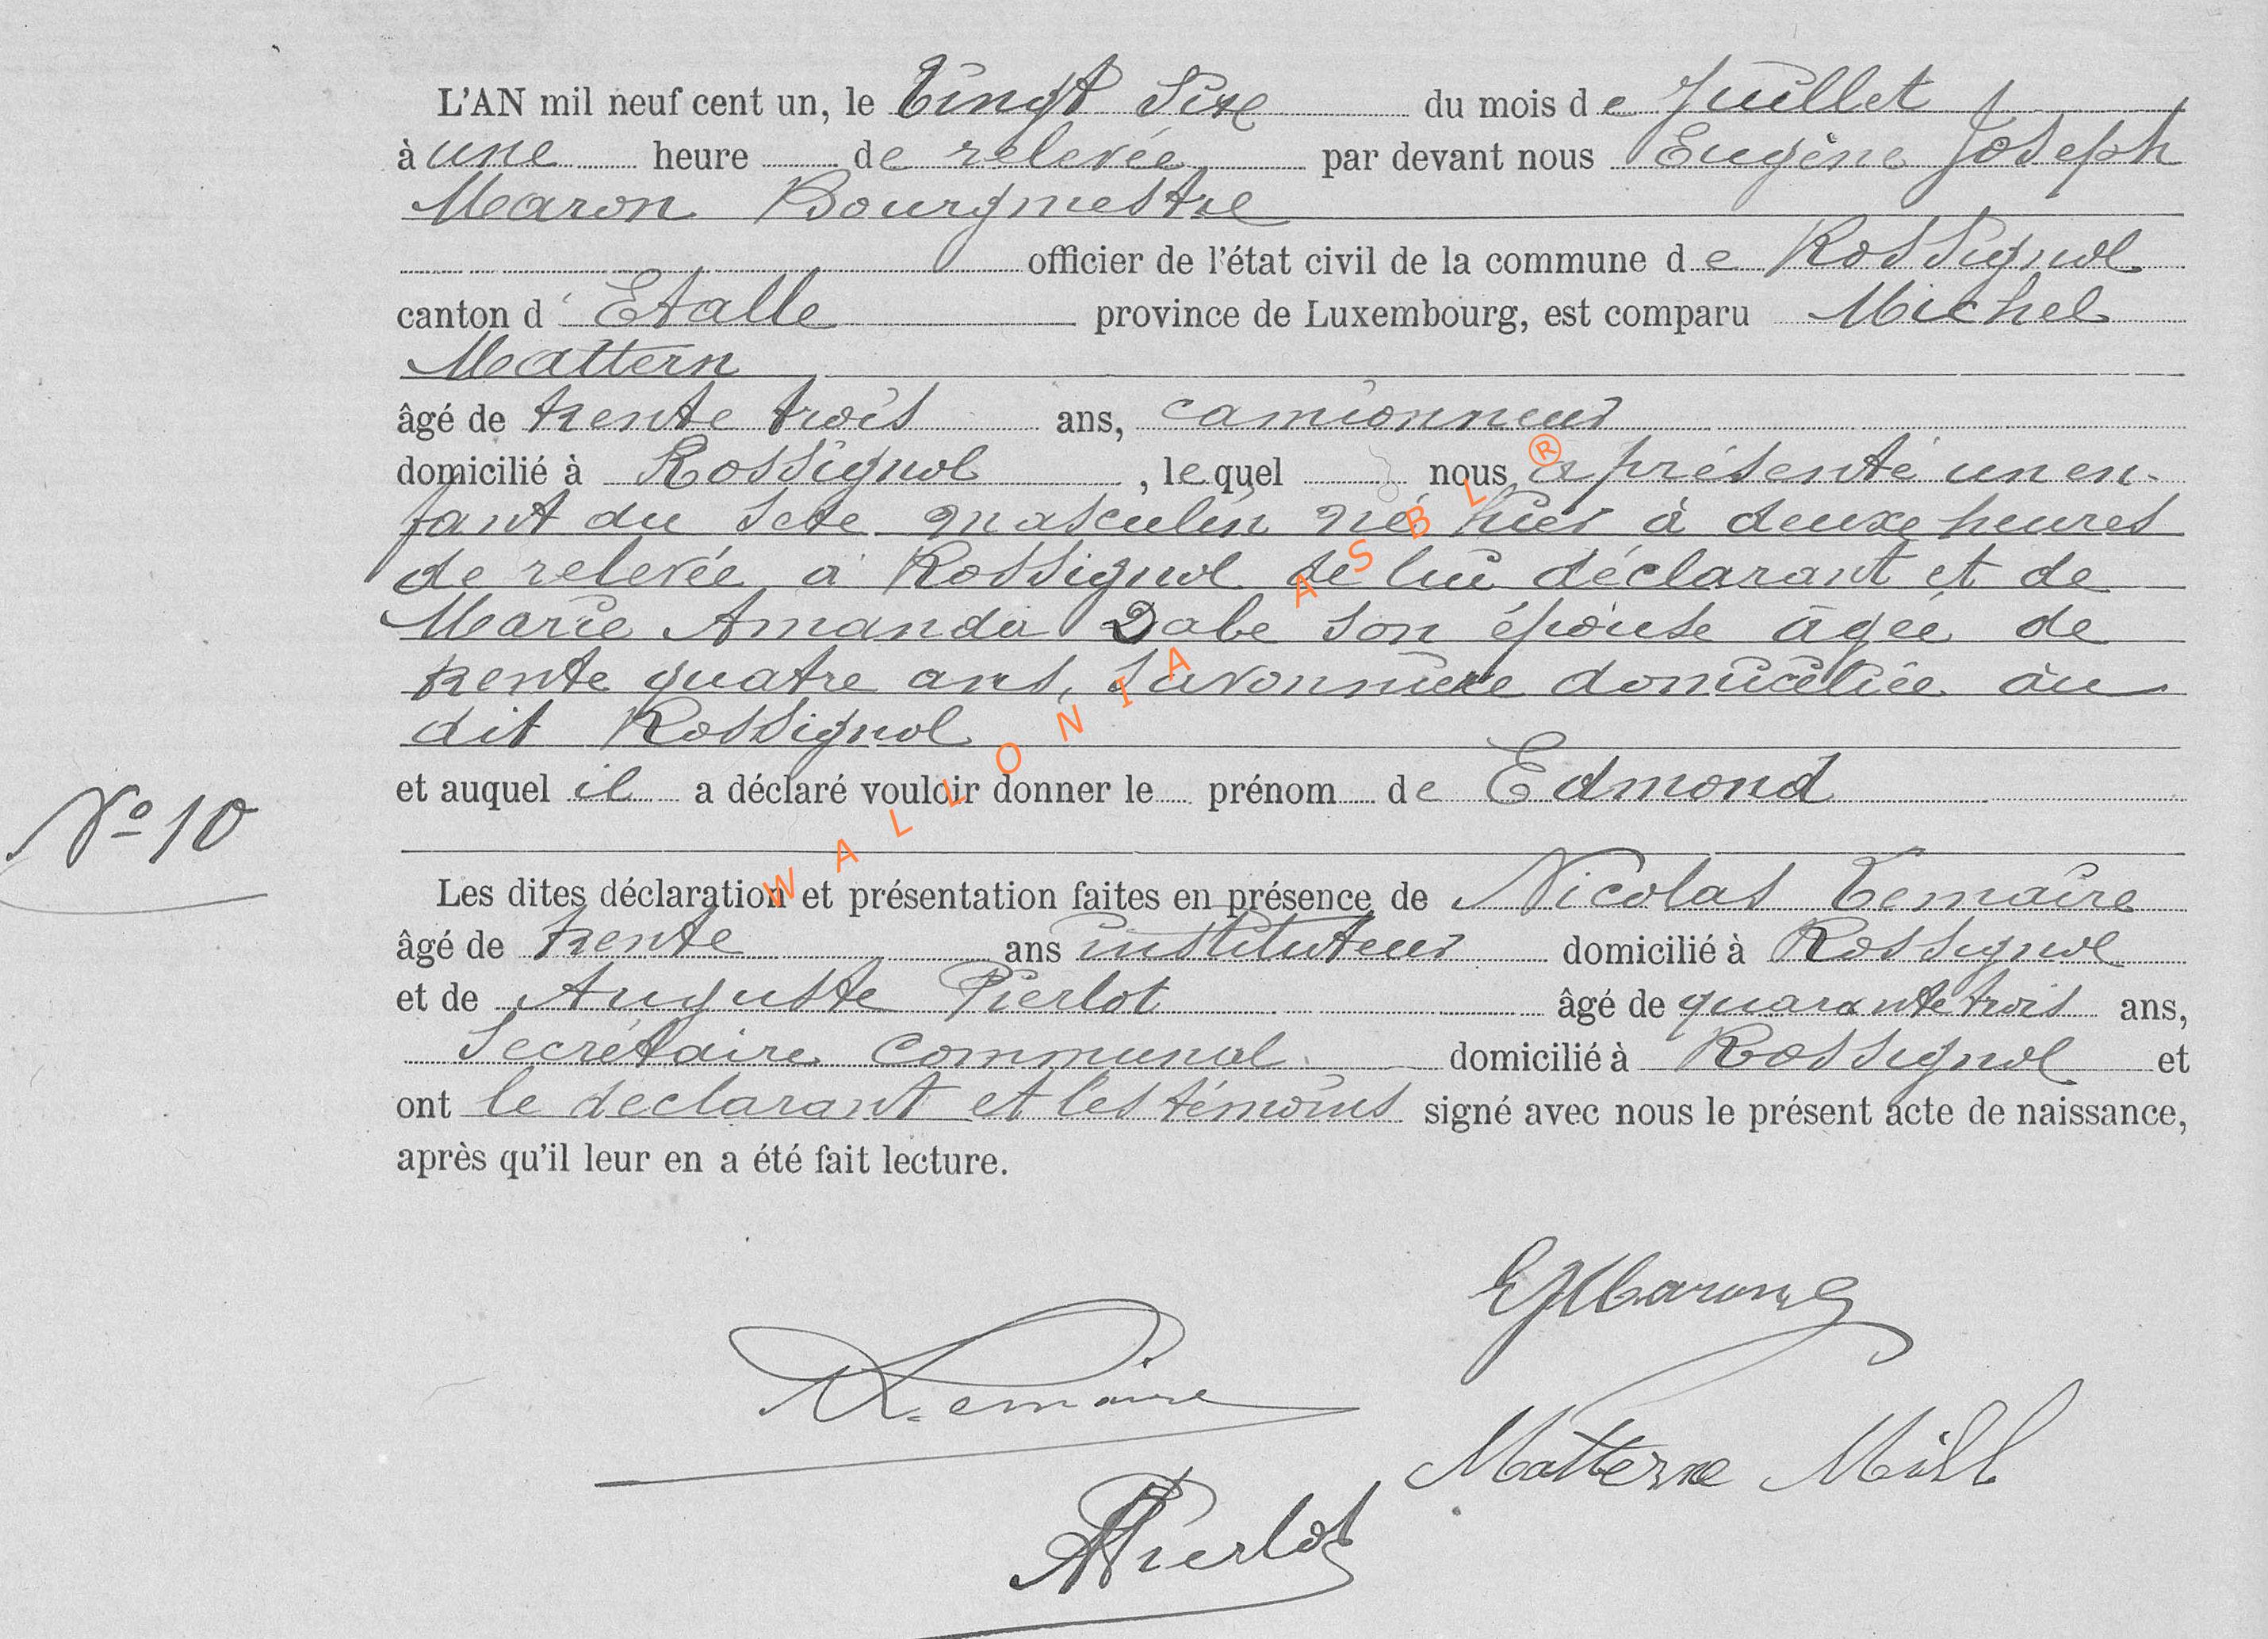 L'AN mil neuf cent un, le Vingt Six du mois de Juillet
à une heure de relevée par devant nous Eugène Joseph
Maron Bourgmestre
officier de l'état civil de la commune de Rossignol
canton d'Etalle province de Luxembourg, est comparu Michel
Mattern
âgé de trente trois ans, camionneur
domicilié à Rossignol, lequel nous a présenté un en-
fant du sexe masculin né hier à deux heures
de relevée à Rossignol de lui déclarant et de
Marie Amanda Dabe son épouse âgée de
trente quatre ans, domiciliée au
dit Rossignol
et auquel il a déclaré vouloir donner le prénom de Edmond
N° 10
Les dites déclaration et présentation faites en présence de Nicolas Lemaire
âgé de trente ans instituteur domicilié à Rossignol
et de Auguste Pierlot âgé de quarante trois ans,
Secrétaire communal domicilié à Rossignol et
ont le declarant et les témoins signé avec nous le présent acte de naissance,
après qu'il leur en a été fait lecture.
EJMaron
Lemaire
Matterne
APierlot
WALLONIA ASBL ®